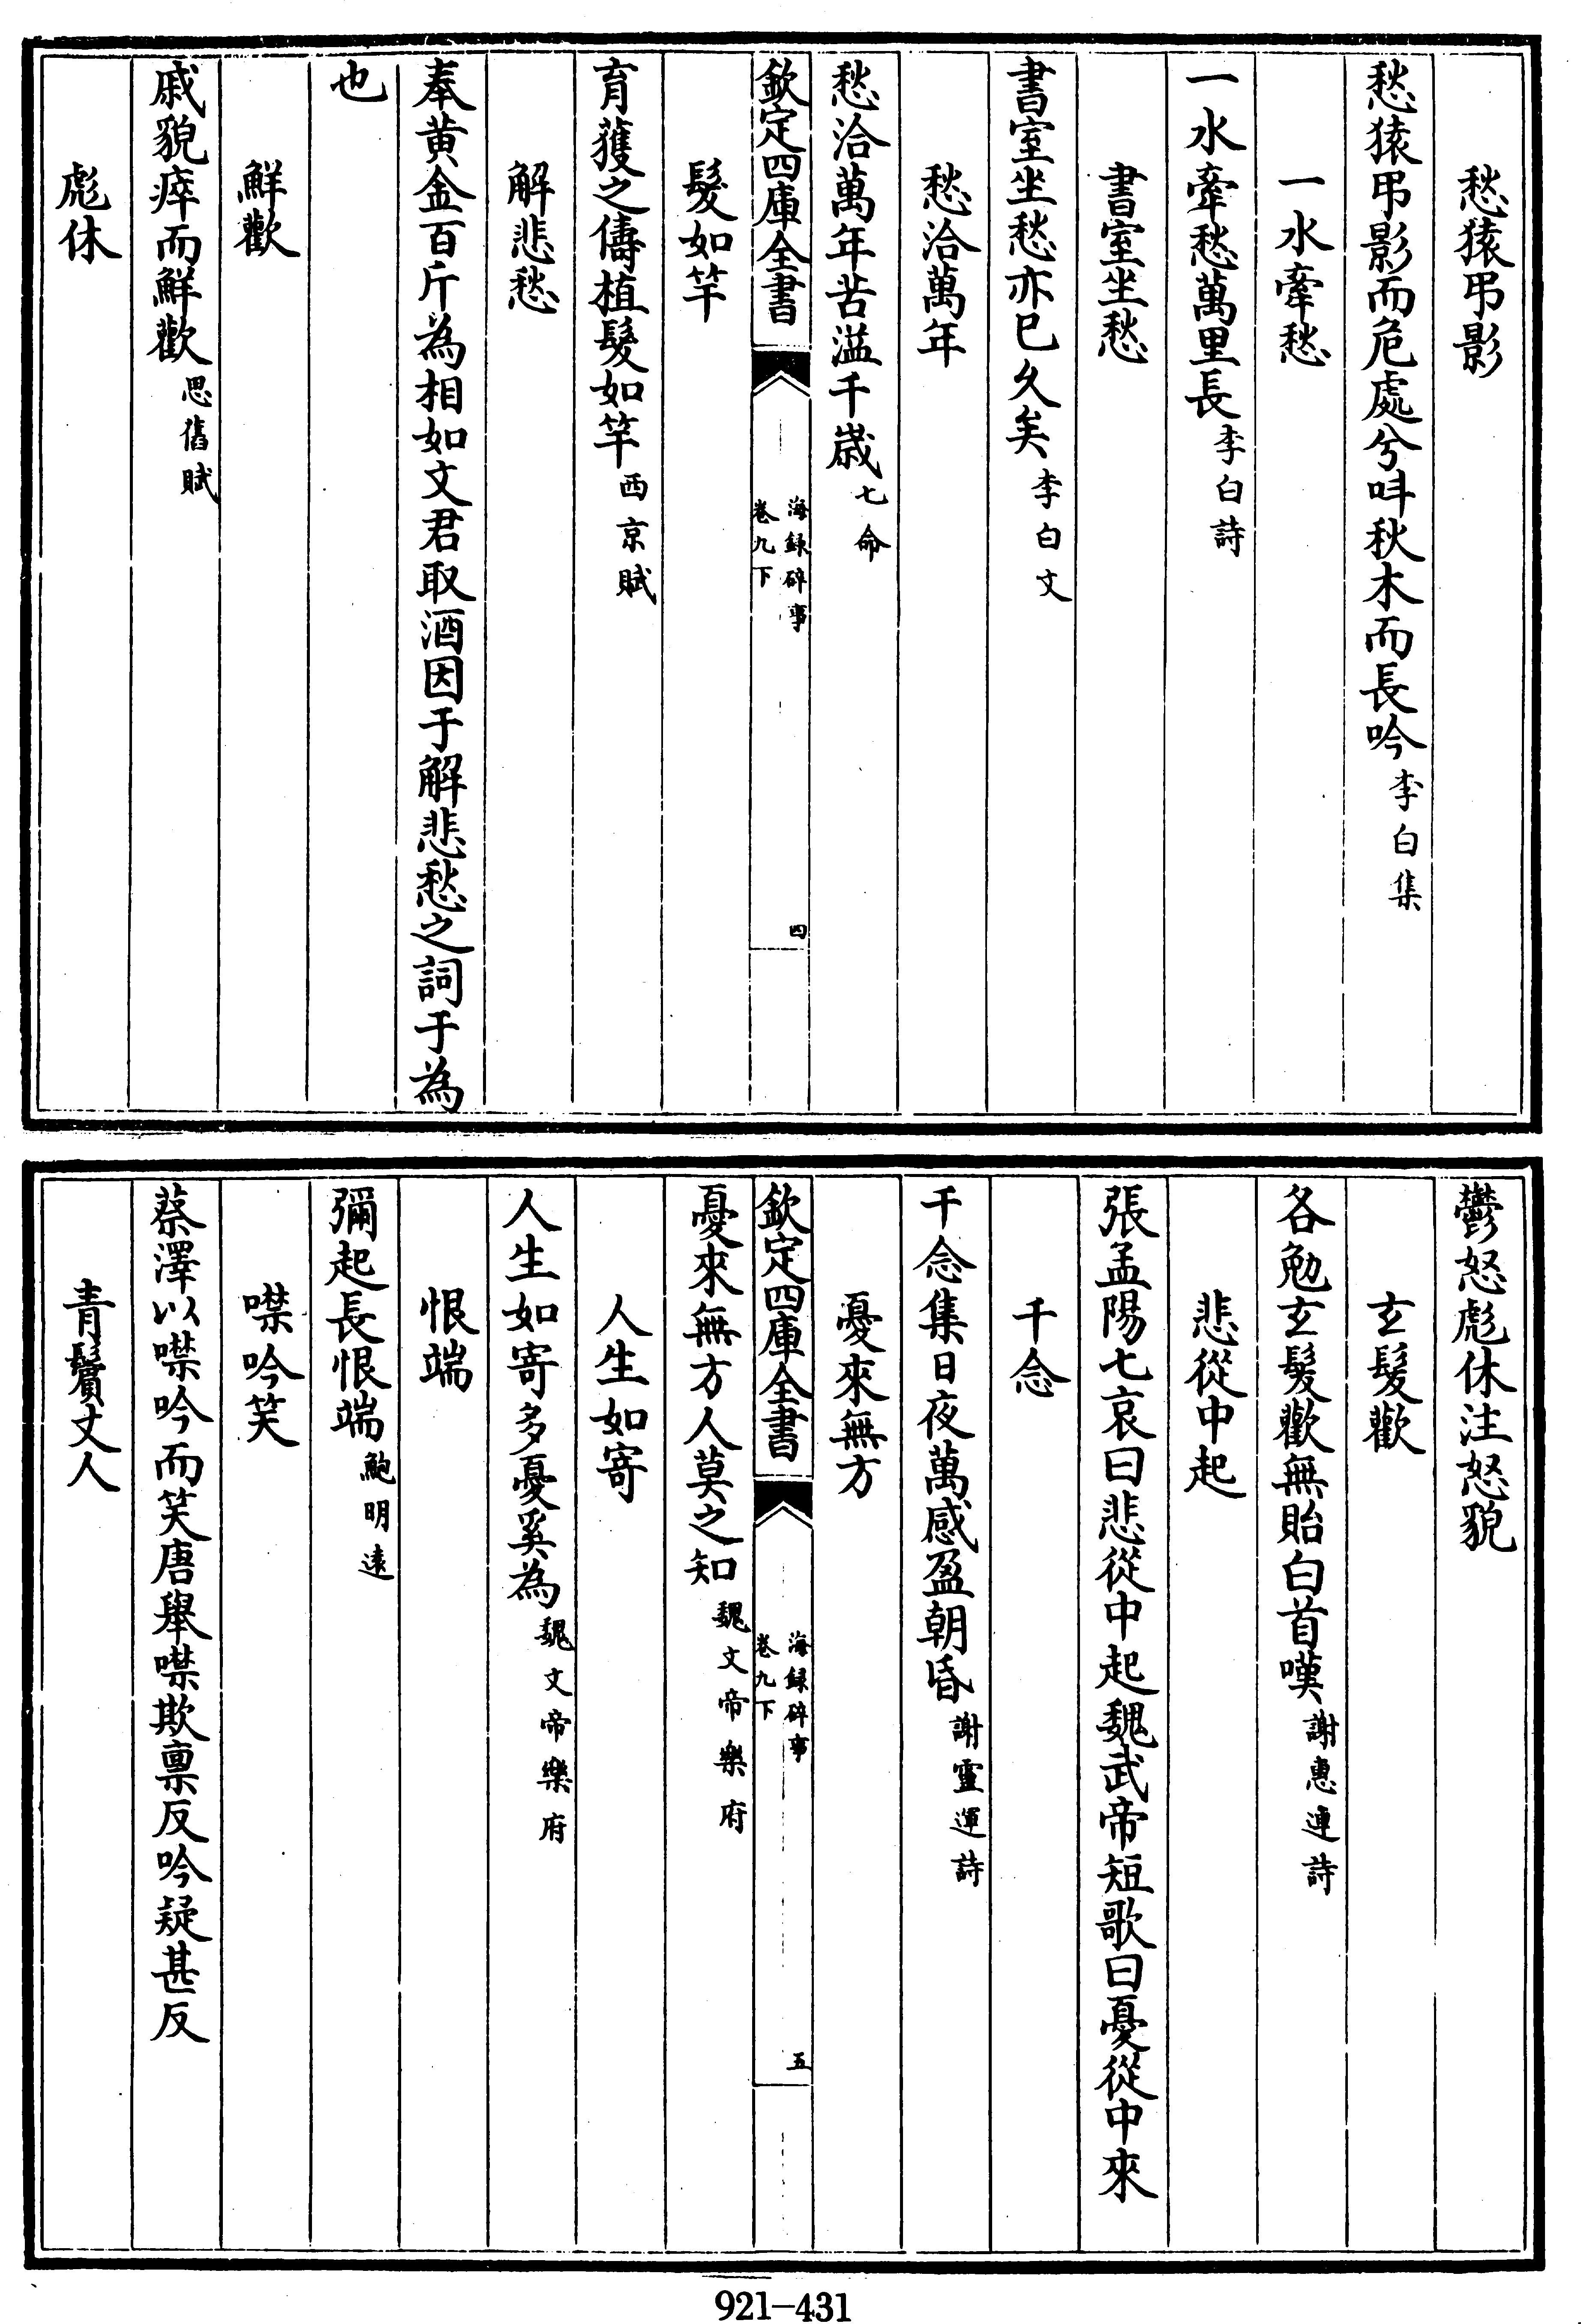 愁猿弔影
愁猿弔影而危處兮呌秋木而長吟李白集
一水牽愁
一水牽愁萬里長李白詩
書室坐愁
書室坐愁亦已久矣李白文
愁洽萬年
愁洽萬年苦溢千歲七命
欽定四庫全書
海錄碎事
卷九下
四
髮如竿
育獲之儔植髮如竿西京賦
解悲愁
奉黄金百斤為相如文君取酒因于解悲愁之詞于為
也
鮮歡
戚貌瘁而鮮歡思舊賦
彪休
鬱怒彪休注怒貌
玄髮歡
各勉玄髮歡無貽白首嘆謝惠連詩
悲從中起
張孟陽七哀曰悲從中起魏武帝短歌曰憂從中來
千念
千念集日夜萬感盈朝昏謝靈運詩
憂來無方
欽定四庫全書
海錄碎事
卷九下
五
憂來無方人莫之知魏文帝樂府
人生如寄
人生如寄多憂奚為魏文帝樂府
恨端
彌起長恨端鮑明遠
噤吟笑
蔡澤以噤吟而笑唐舉噤欺禀反吟疑甚反
青鬢丈人
921-431